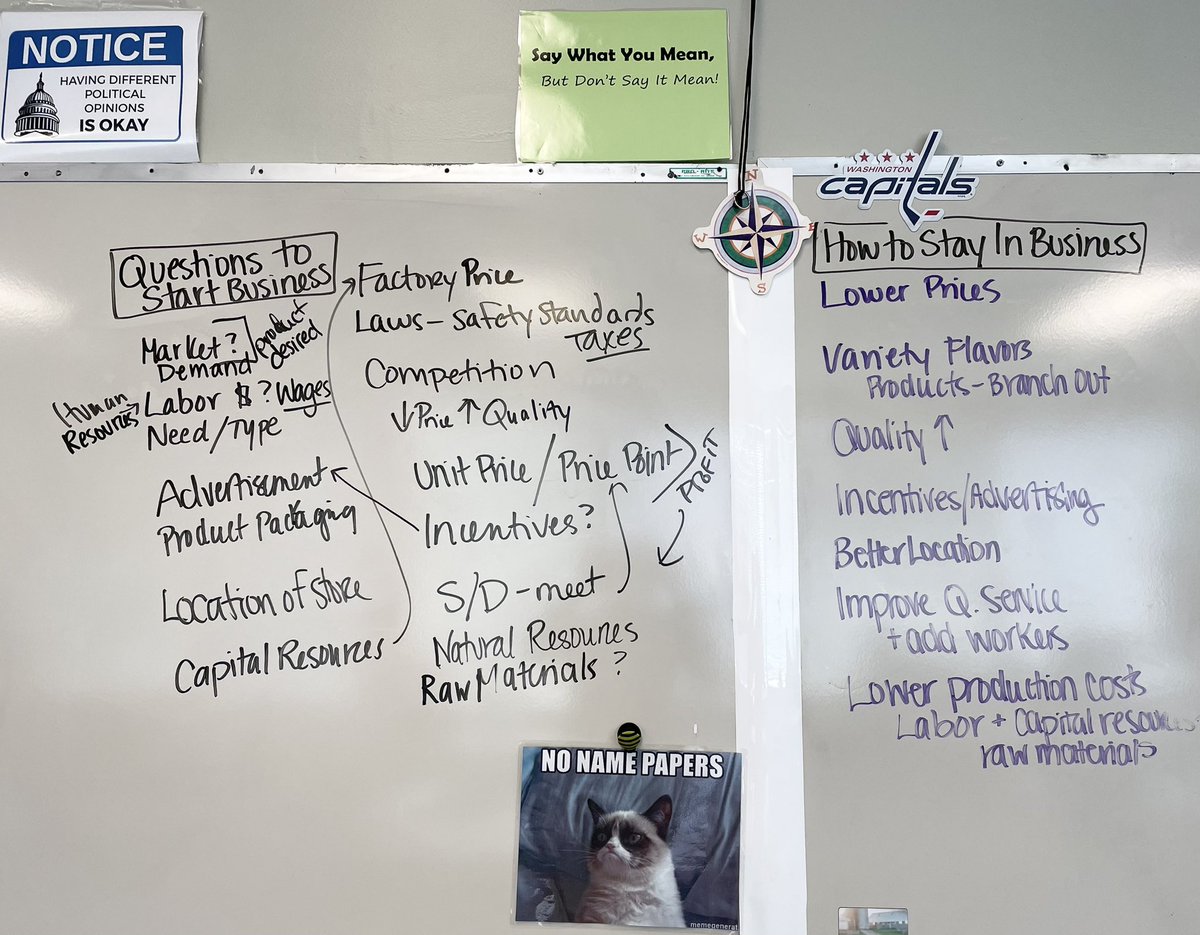 NOTICE
HAVING DIFFERENT
POLITICAL
OPINIONS
IS OKAY
Say What You Mean,
But Don't Say It Mean!
WASHINGTON
capitals
N
W
E
S
Questions to
Start Business
Market?
Demand
product
desired
Human
Resources
Labor $? Wages
Need/Type
Advertisment
Product Packaging
Location of store
Capital Resources
Factory Price
Laws - Safety Standards
Taxes
Competition
↓ Price ↑ Quality
Unit Price / Price Point
PROFIT
Incentives?
S/D - meet
Natural Resources
Raw Materials?
How to Stay In Business
Lower Prices
Variety Flavors
Products - Branch Out
Quality ↑
Incentives/Advertising
Better Location
Improve Q. Service
+ add workers
Lower production costs
Labor + Capital resources
raw materials
NO NAME PAPERS